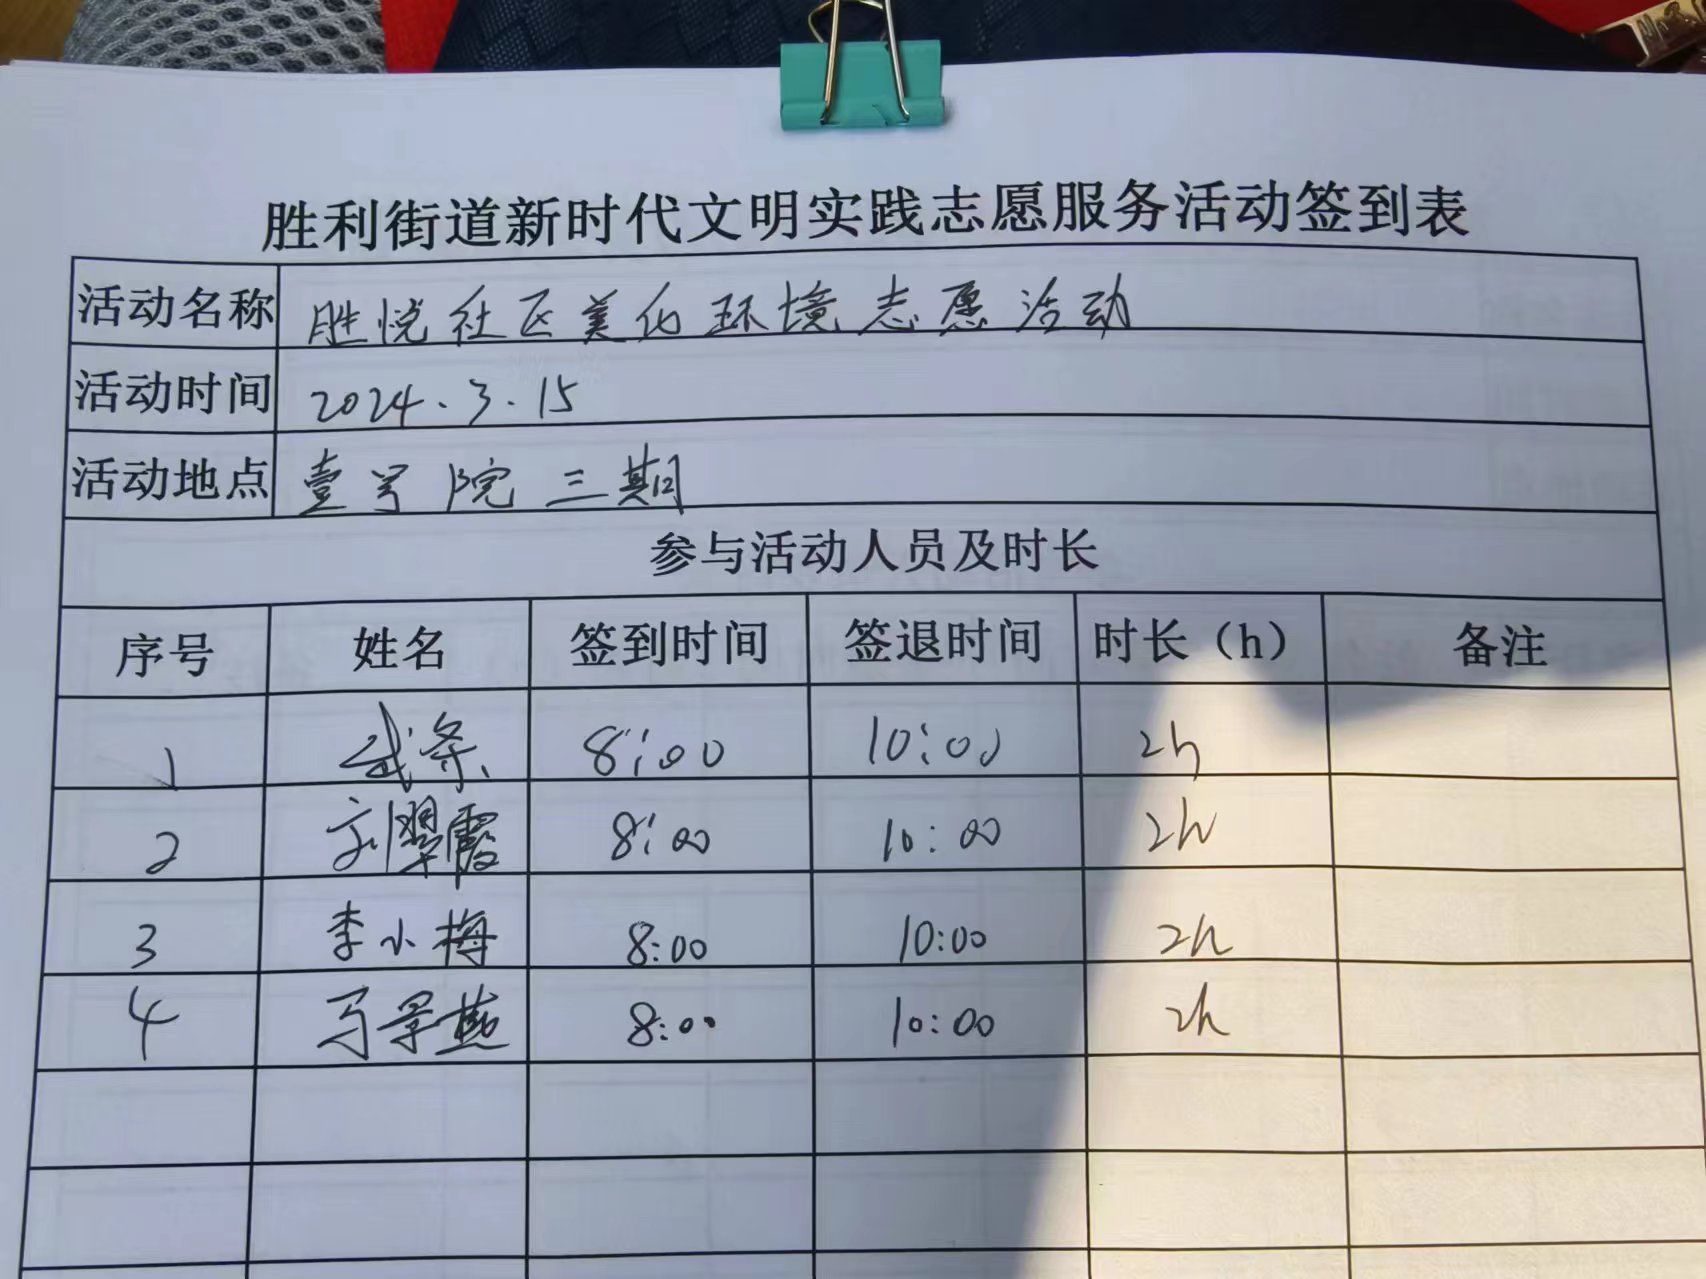 胜利街道新时代文明实践志愿服务活动签到表
活动名称 胜悦社区美化环境志愿活动
活动时间 2024.3.15
活动地点 壹号院三期
参与活动人员及时长
序号 姓名 签到时间 签退时间 时长（h） 备注
1 武条 8:00 10:00 2h
2 刘翠霞 8:00 10:00 2h
3 李小梅 8:00 10:00 2h
4 马景燕 8:00 10:00 2h